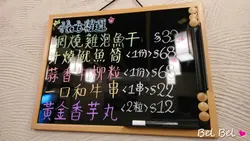 燒雞泡魚干 $32
燒魷魚筒 <1份> $68
蒜香 柳粒 <1份> $68
一口和牛串 <1串> $22
黃金香芋丸 <2粒> $12
Bel Bel